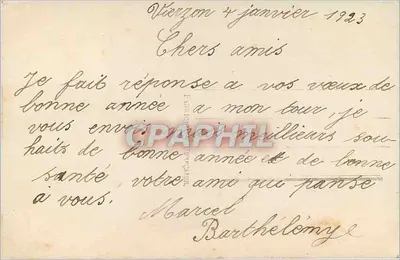 Vierzon 4 janvier 1923
Chers amis
Je fait réponse a vos vœux de
bonne année a mon tour, je
vous envois mes meillieurs sou-
haits de bonne année et de bonne
santé votre ami qui panse
à vous.
Marcel
Barthélémye
CPAPHIL